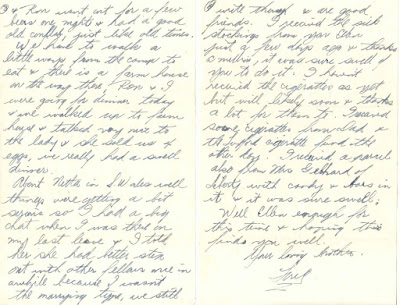 & Ron went out for a few
beers one night & had a good
old confab, just like old times.
We had to walk a
little ways from the camp to
eat & there is a farm house
on the way there, Ron & I
were going for dinner today
& we walked up to farm
house & talked very nice to
the lady & she sold us
eggs, we really had a swell
dinner.
About Netta in S. Wales well
things were getting a bit
serious so I had a big
chat when I was there on
my last leave & I told
her she had better step
out with other fellows once in
awhile because I wasn't
the marrying type, we still
write though & are good
friends. I received the silk
stockings from you Ellen
just a few days ago & thanks
a million, it was sure swell of
you to do it. I haven't
received the cigarettes as yet
but will likely soon & thanks
a lot for them to. I received
some cigarettes from Dad &
the cigarette fund the
other day. I received a parcel
also from Mrs Gebhard of
with candy & bars in
it & it was sure swell.
Well Ellen enough for
this time & hoping this
finds you well.
Your loving brother
Fred